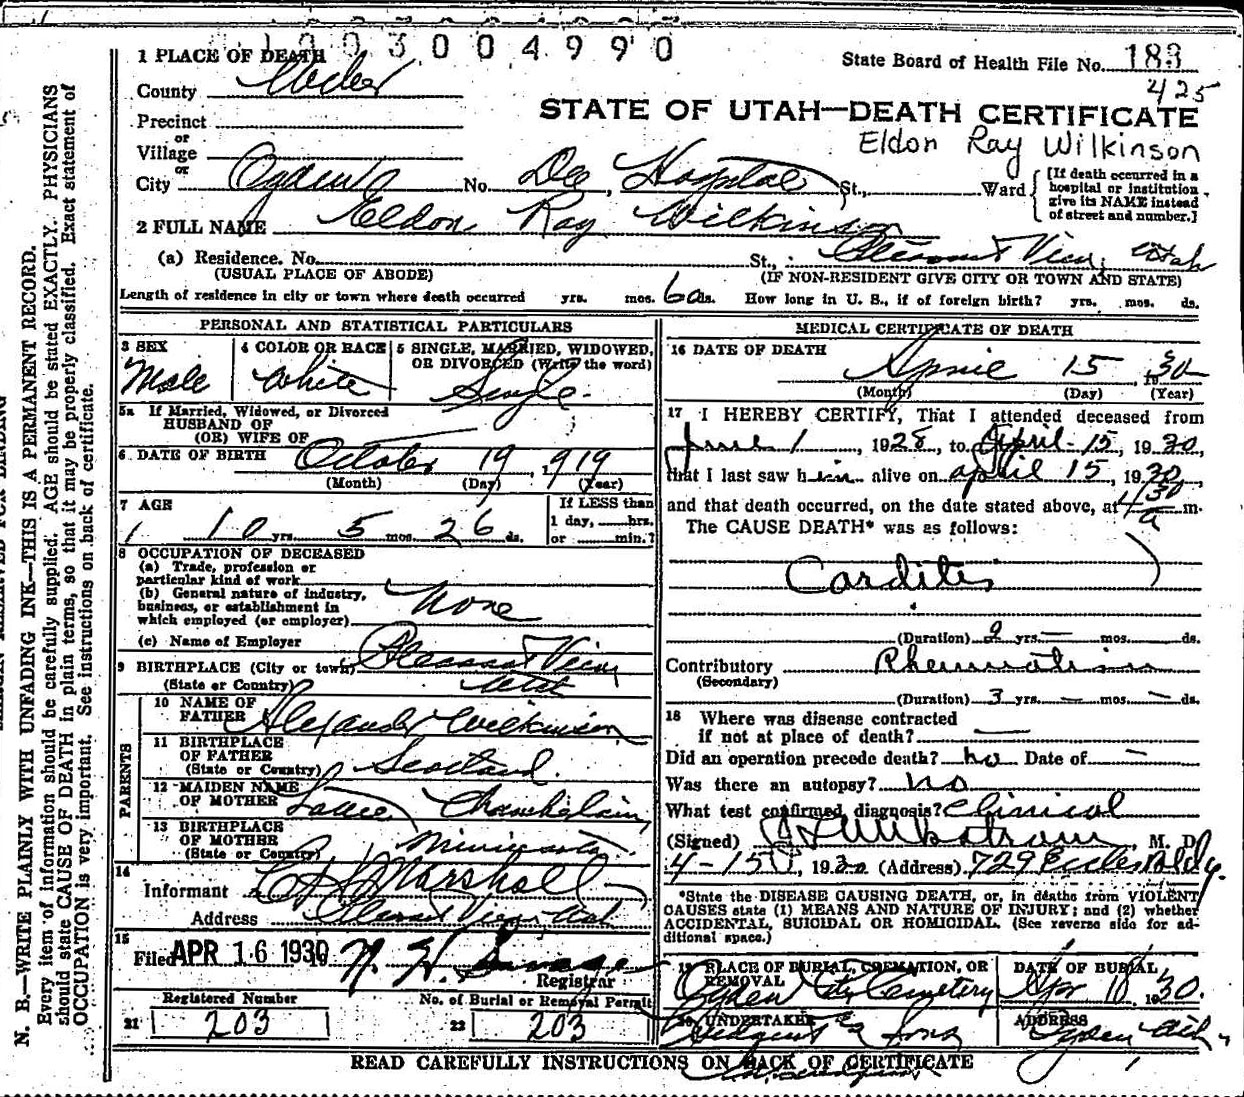 1003004990
1 PLACE OF DEATH
State Board of Health File No. 183
County Weber
425
STATE OF UTAH—DEATH CERTIFICATE
Precinct
or
Village
Eldon Ray Wilkinson
or
City Ogden No. Dee Hospital St., Ward
[If death occurred in a hospital or institution give its NAME instead of street and number.]
2 FULL NAME Eldon Ray Wilkinson
(a) Residence. No. St., Pleasant View, Utah
(USUAL PLACE OF ABODE) (IF NON-RESIDENT GIVE CITY OR TOWN AND STATE)
Length of residence in city or town where death occurred yrs. mos. 6 ds. How long in U. S., if of foreign birth? yrs. mos. ds.
PERSONAL AND STATISTICAL PARTICULARS
3 SEX Male
4 COLOR OR RACE White
5 SINGLE, MARRIED, WIDOWED, OR DIVORCED (Write the word) Single
5a If Married, Widowed, or Divorced
HUSBAND OF
(OR) WIFE OF
6 DATE OF BIRTH October 19, 1919
(Month) (Day) (Year)
7 AGE 10 yrs. 5 mos. 26 ds.
If LESS than
1 day, hrs.
or min.?
8 OCCUPATION OF DECEASED
(a) Trade, profession or
particular kind of work
(b) General nature of industry,
business, or establishment in
which employed (or employer) None
(c) Name of Employer
9 BIRTHPLACE (City or town) Pleasant View
(State or Country) Utah
PARENTS
10 NAME OF FATHER Alexander Wilkinson
11 BIRTHPLACE OF FATHER (State or Country) Scotland
12 MAIDEN NAME OF MOTHER Chamberlain
13 BIRTHPLACE OF MOTHER (State or Country) Minnesota
14
Informant Marshall
Address Pleasant View Utah
15
Filed APR 16 1930
Registrar
Registered Number
No. of Burial or Removal Permit
21 203
22 203
MEDICAL CERTIFICATE OF DEATH
16 DATE OF DEATH April 15, 1930
(Month) (Day) (Year)
17 I HEREBY CERTIFY, That I attended deceased from
June 1, 1928, to April 15, 1930,
that I last saw him alive on April 15, 1930,
and that death occurred, on the date stated above, at 4 30 a m.
The CAUSE DEATH* was as follows:
Carditis
(Duration) 2 yrs. — mos. ds.
Contributory Rheumatism
(Secondary)
(Duration) 3 yrs. — mos. — ds.
18 Where was disease contracted
if not at place of death? —
Did an operation precede death? no Date of —
Was there an autopsy? no
What test confirmed diagnosis? Clinical
(Signed) M. D.
4-15, 1930 (Address) 729 Eccles Bldg.
*State the DISEASE CAUSING DEATH, or, in deaths from VIOLENT
CAUSES state (1) MEANS AND NATURE OF INJURY; and (2) whether
ACCIDENTAL, SUICIDAL OR HOMICIDAL. (See reverse side for ad-
ditional space.)
19 PLACE OF BURIAL, CREMATION, OR REMOVAL
Ogden City Cemetery
DATE OF BURIAL
Apr 1930
20 UNDERTAKER
& Sons
ADDRESS
Ogden Utah
READ CAREFULLY INSTRUCTIONS ON BACK OF CERTIFICATE
N. B.—WRITE PLAINLY WITH UNFADING INK—THIS IS A PERMANENT RECORD.
Every item of information should be carefully supplied. AGE should be stated EXACTLY. PHYSICIANS
should state CAUSE OF DEATH in plain terms, so that it may be properly classified. Exact statement of
OCCUPATION is very important. See instructions on back of certificate.